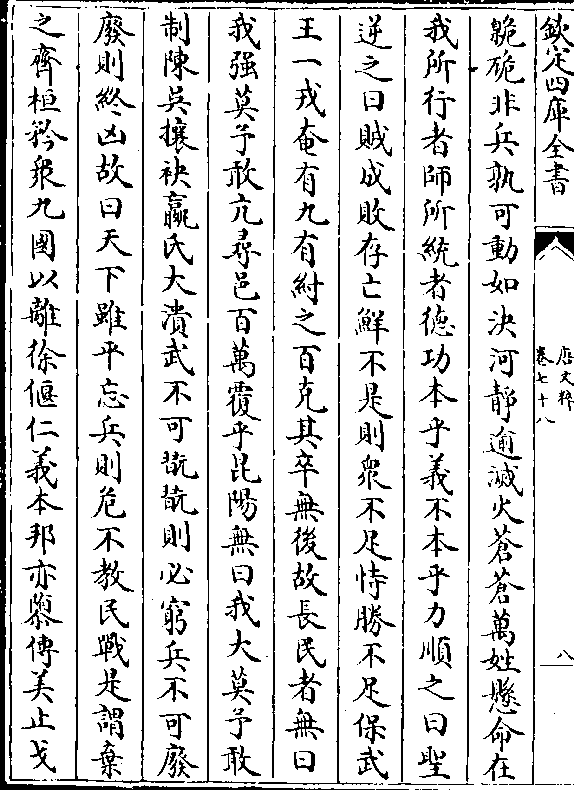 欽定四庫全書
唐文粹
卷七十八
八
臲硊非兵孰可動如決河靜逾滅火蒼蒼萬姓懸命在
我所行者師所統者德功本乎義不本乎力順之曰聖
逆之曰賊成敗存亡鮮不是則衆不足恃勝不足保武
王一戎奄有九有紂之百克其卒無後故長民者無曰
我强莫予敢亢尋邑百萬覆乎昆陽無曰我大莫予敢
制陳吳攘袂嬴氏大潰武不可翫翫則必窮兵不可廢
廢則終凶故曰天下雖平忘兵則危不教民戰是謂棄
之齊桓矜衆九國以離徐偃仁義本邦亦隳傳美止戈